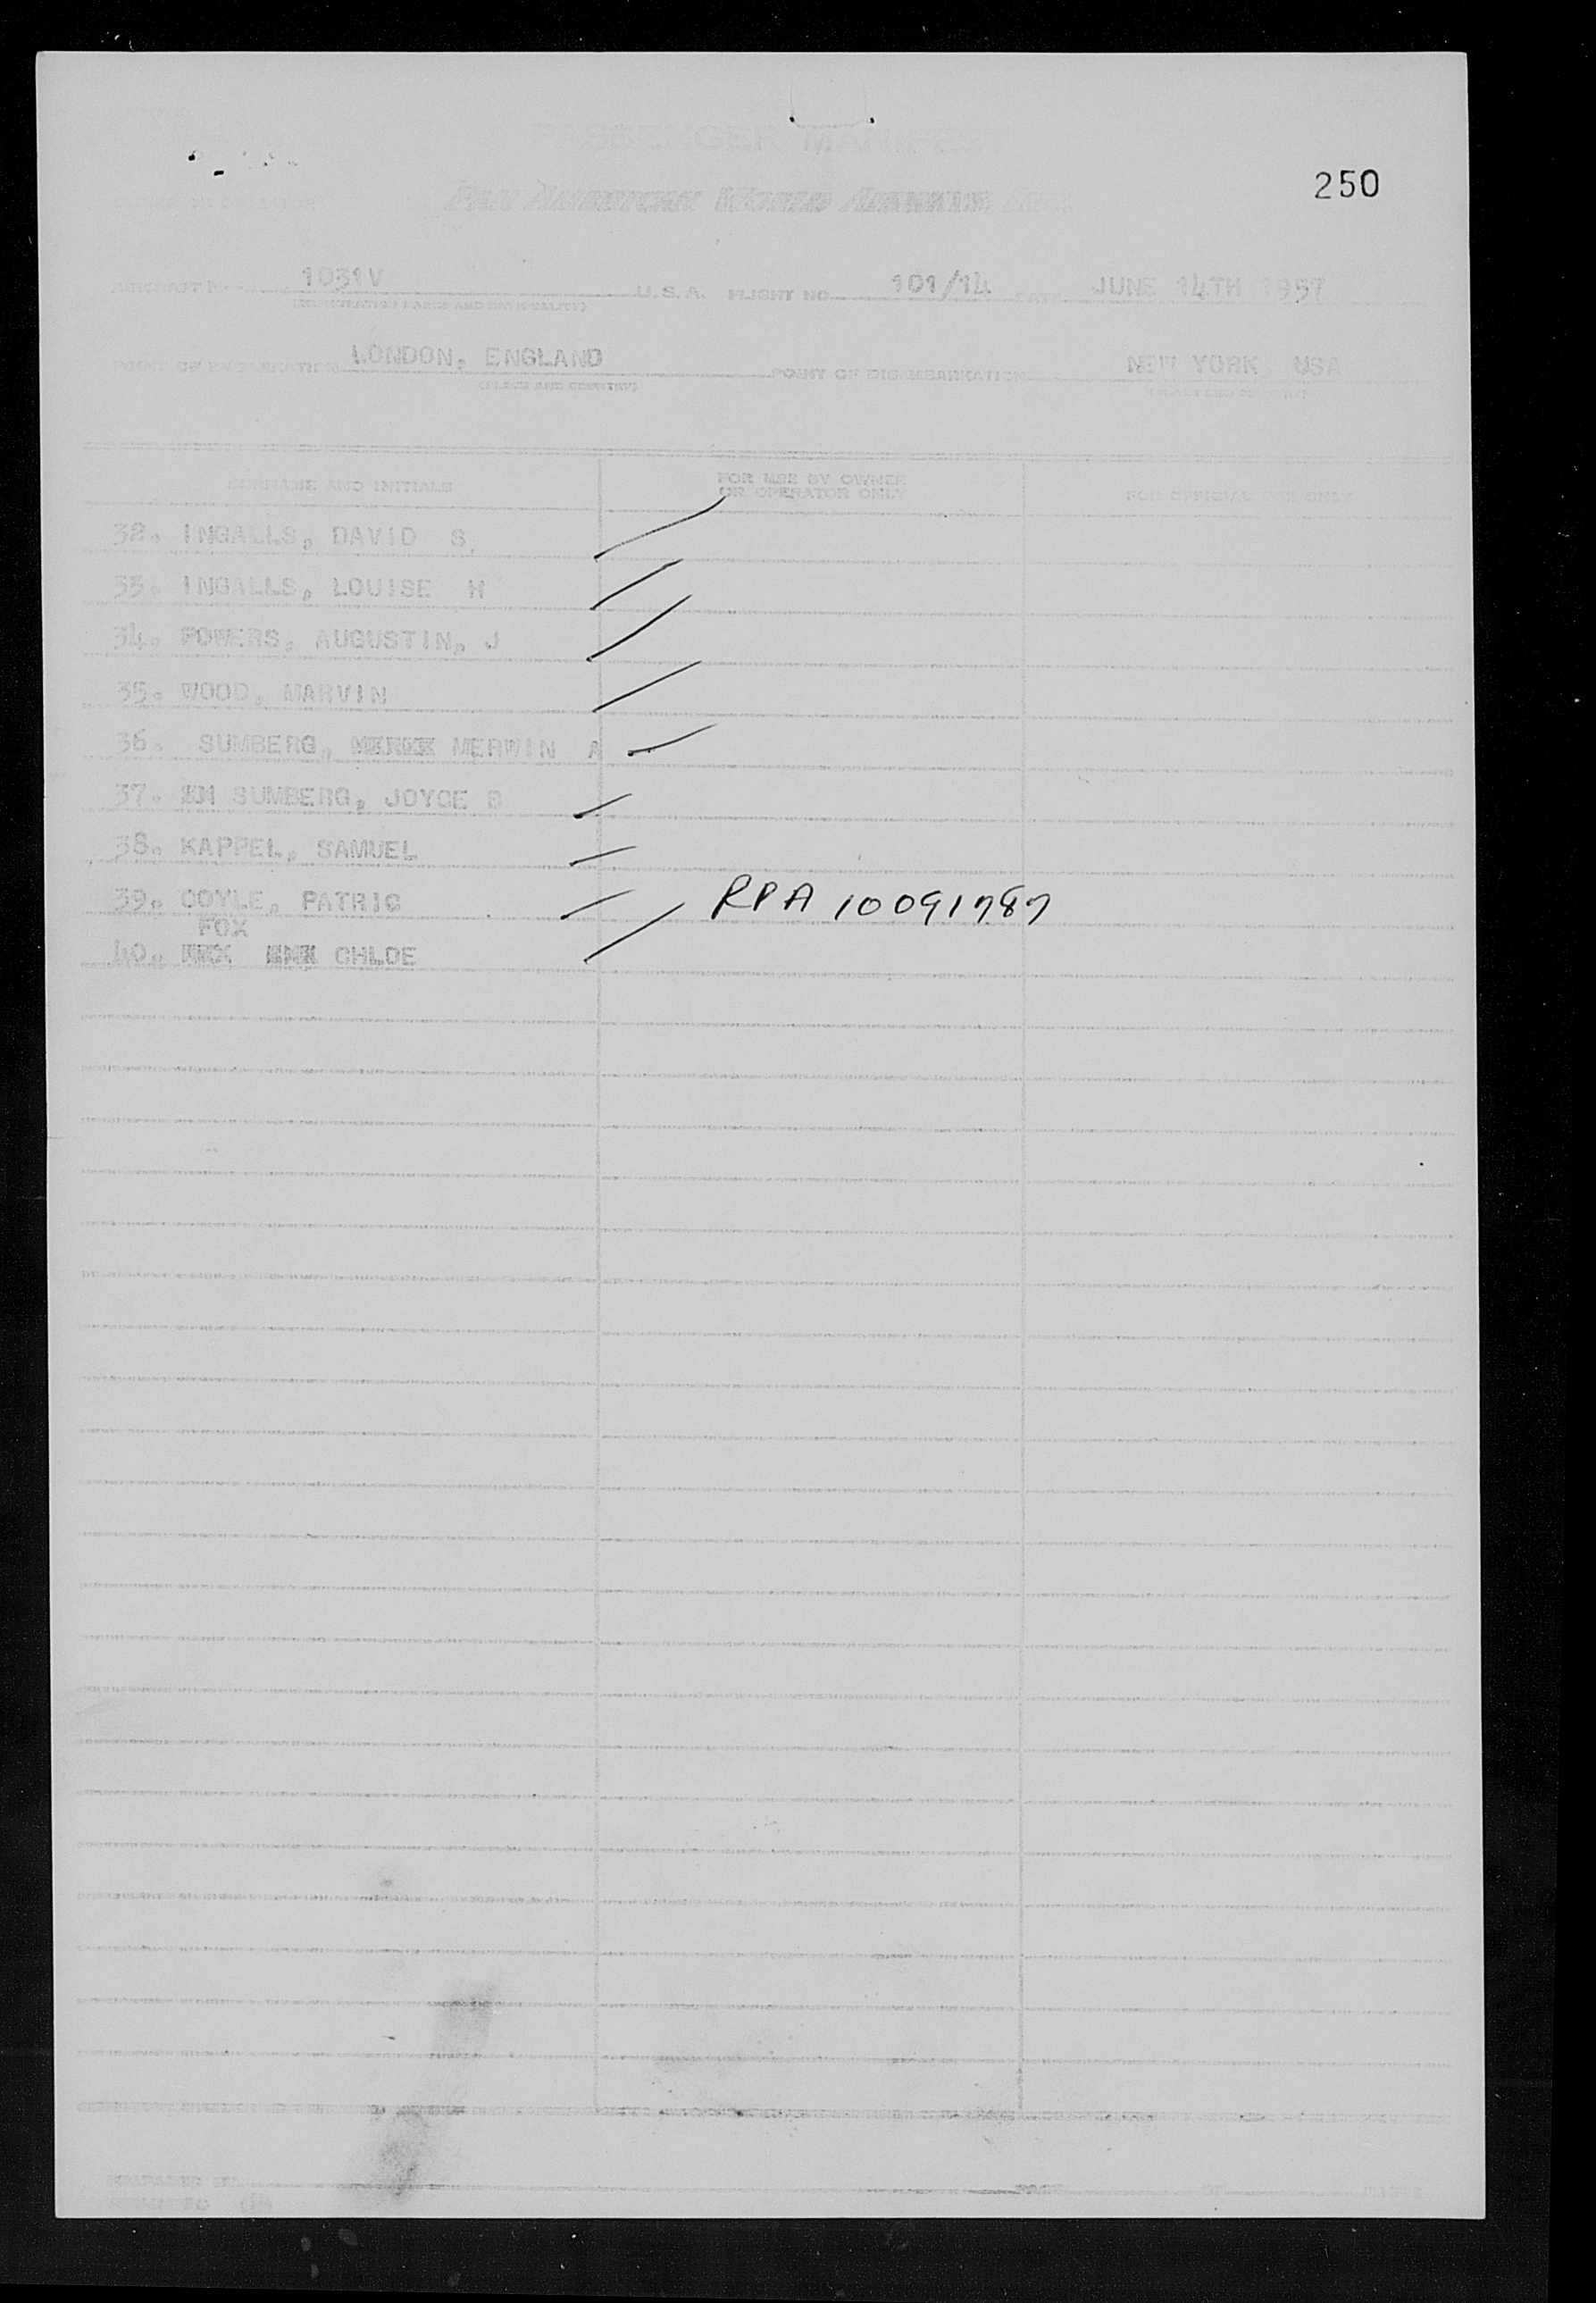 PASSENGER MANIFEST
PAN AMERICAN WORLD AIRWAYS
250
AIRCRAFT No. 1031V U.S.A. FLIGHT NO. 101/14 DATE JUNE 14TH 1957
(REGISTRATION MARKS AND NATIONALITY)
POINT OF EMBARKATION LONDON, ENGLAND POINT OF DISEMBARKATION NEW YORK USA
(PLACE AND COUNTRY) (PLACE AND COUNTRY)
SURNAME AND INITIALS FOR USE BY OWNER OR OPERATOR ONLY FOR OFFICIAL USE ONLY
32. INGALLS, DAVID S.
33. INGALLS, LOUISE H
34. POWERS, AUGUSTIN, J
35. WOOD, MARVIN
36. SUMBERG, MERWIN A
37. SUMBERG, JOYCE B
38. KAPPEL, SAMUEL
39. COYLE, PATRIC RPA 10091787
FOX
40. CHLOE